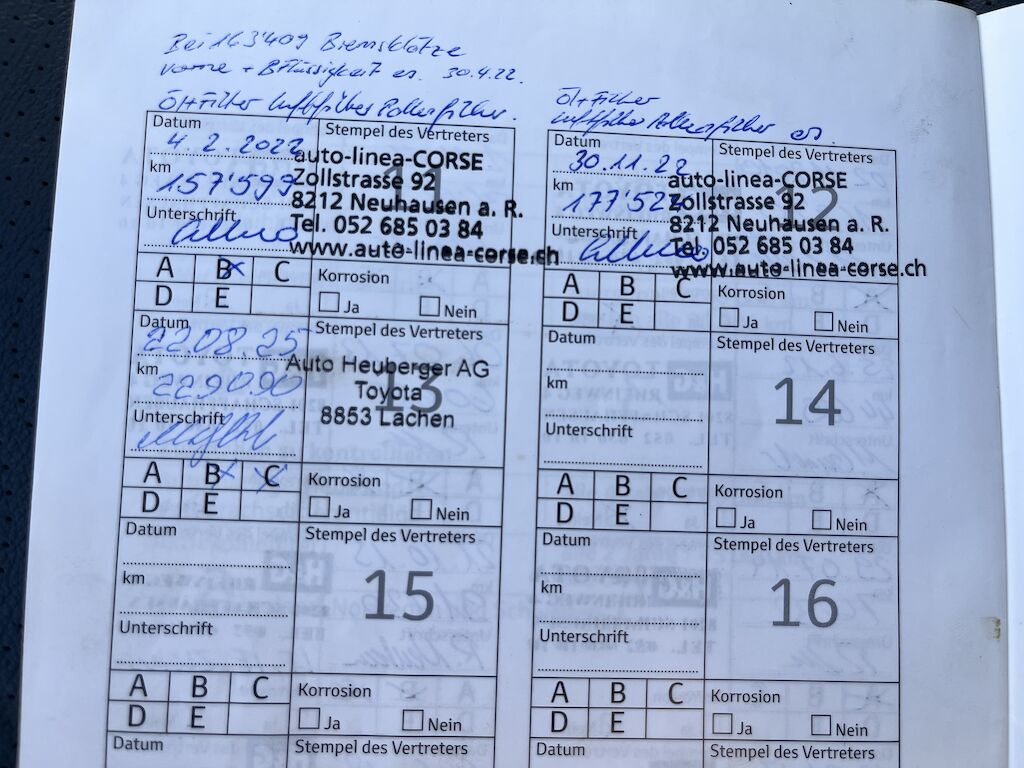 Bei 163'409 Bremsklötze
vorne + B Flüssigkeit er. 30.4.22.
Öl+Filter Luftfilter Pollenfilter.
Datum
4.2.2022
km
157'599
Unterschrift
Stempel des Vertreters
11
auto-linea-CORSE
Zollstrasse 92
8212 Neuhausen a. R.
Tel. 052 685 03 84
www.auto-linea-corse.ch
A B C
D E
Korrosion
Ja Nein
Öl+Filter
Luftfilter Pollenfilter er.
Datum
30.11.22
km
Unterschrift
Stempel des Vertreters
12
auto-linea-CORSE
Zollstrasse 92
8212 Neuhausen a. R.
Tel. 052 685 03 84
www.auto-linea-corse.ch
A B C
D E
Korrosion
Ja Nein
Datum
22.08.25
km
229090
Unterschrift
Stempel des Vertreters
13
Auto Heuberger AG
Toyota
8853 Lachen
A B C
D E
Korrosion
Ja Nein
Datum
km
Unterschrift
Stempel des Vertreters
14
A B C
D E
Korrosion
Ja Nein
Datum
km
Unterschrift
Stempel des Vertreters
15
A B C
D E
Korrosion
Ja Nein
Datum
km
Unterschrift
Stempel des Vertreters
16
A B C
D E
Korrosion
Ja Nein
Datum
Stempel des Vertreters
Datum
Stempel des Vertreters